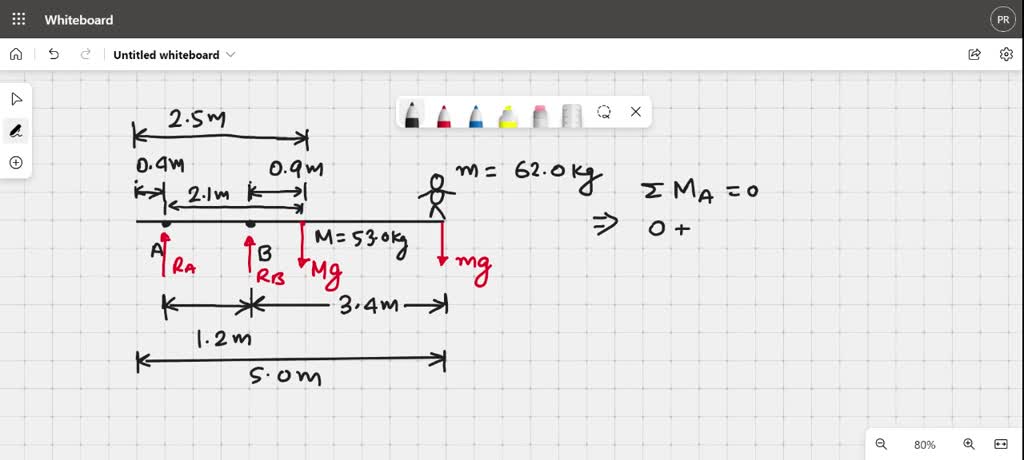 Whiteboard
PR
Untitled whiteboard
2.5m
0.4m
0.9m
2.1m
m = 62.0kg
Σ MA = 0
⇒ 0 +
A
B
M = 53.0kg
RA
RB
Mg
mg
3.4m
1.2m
5.0m
80%